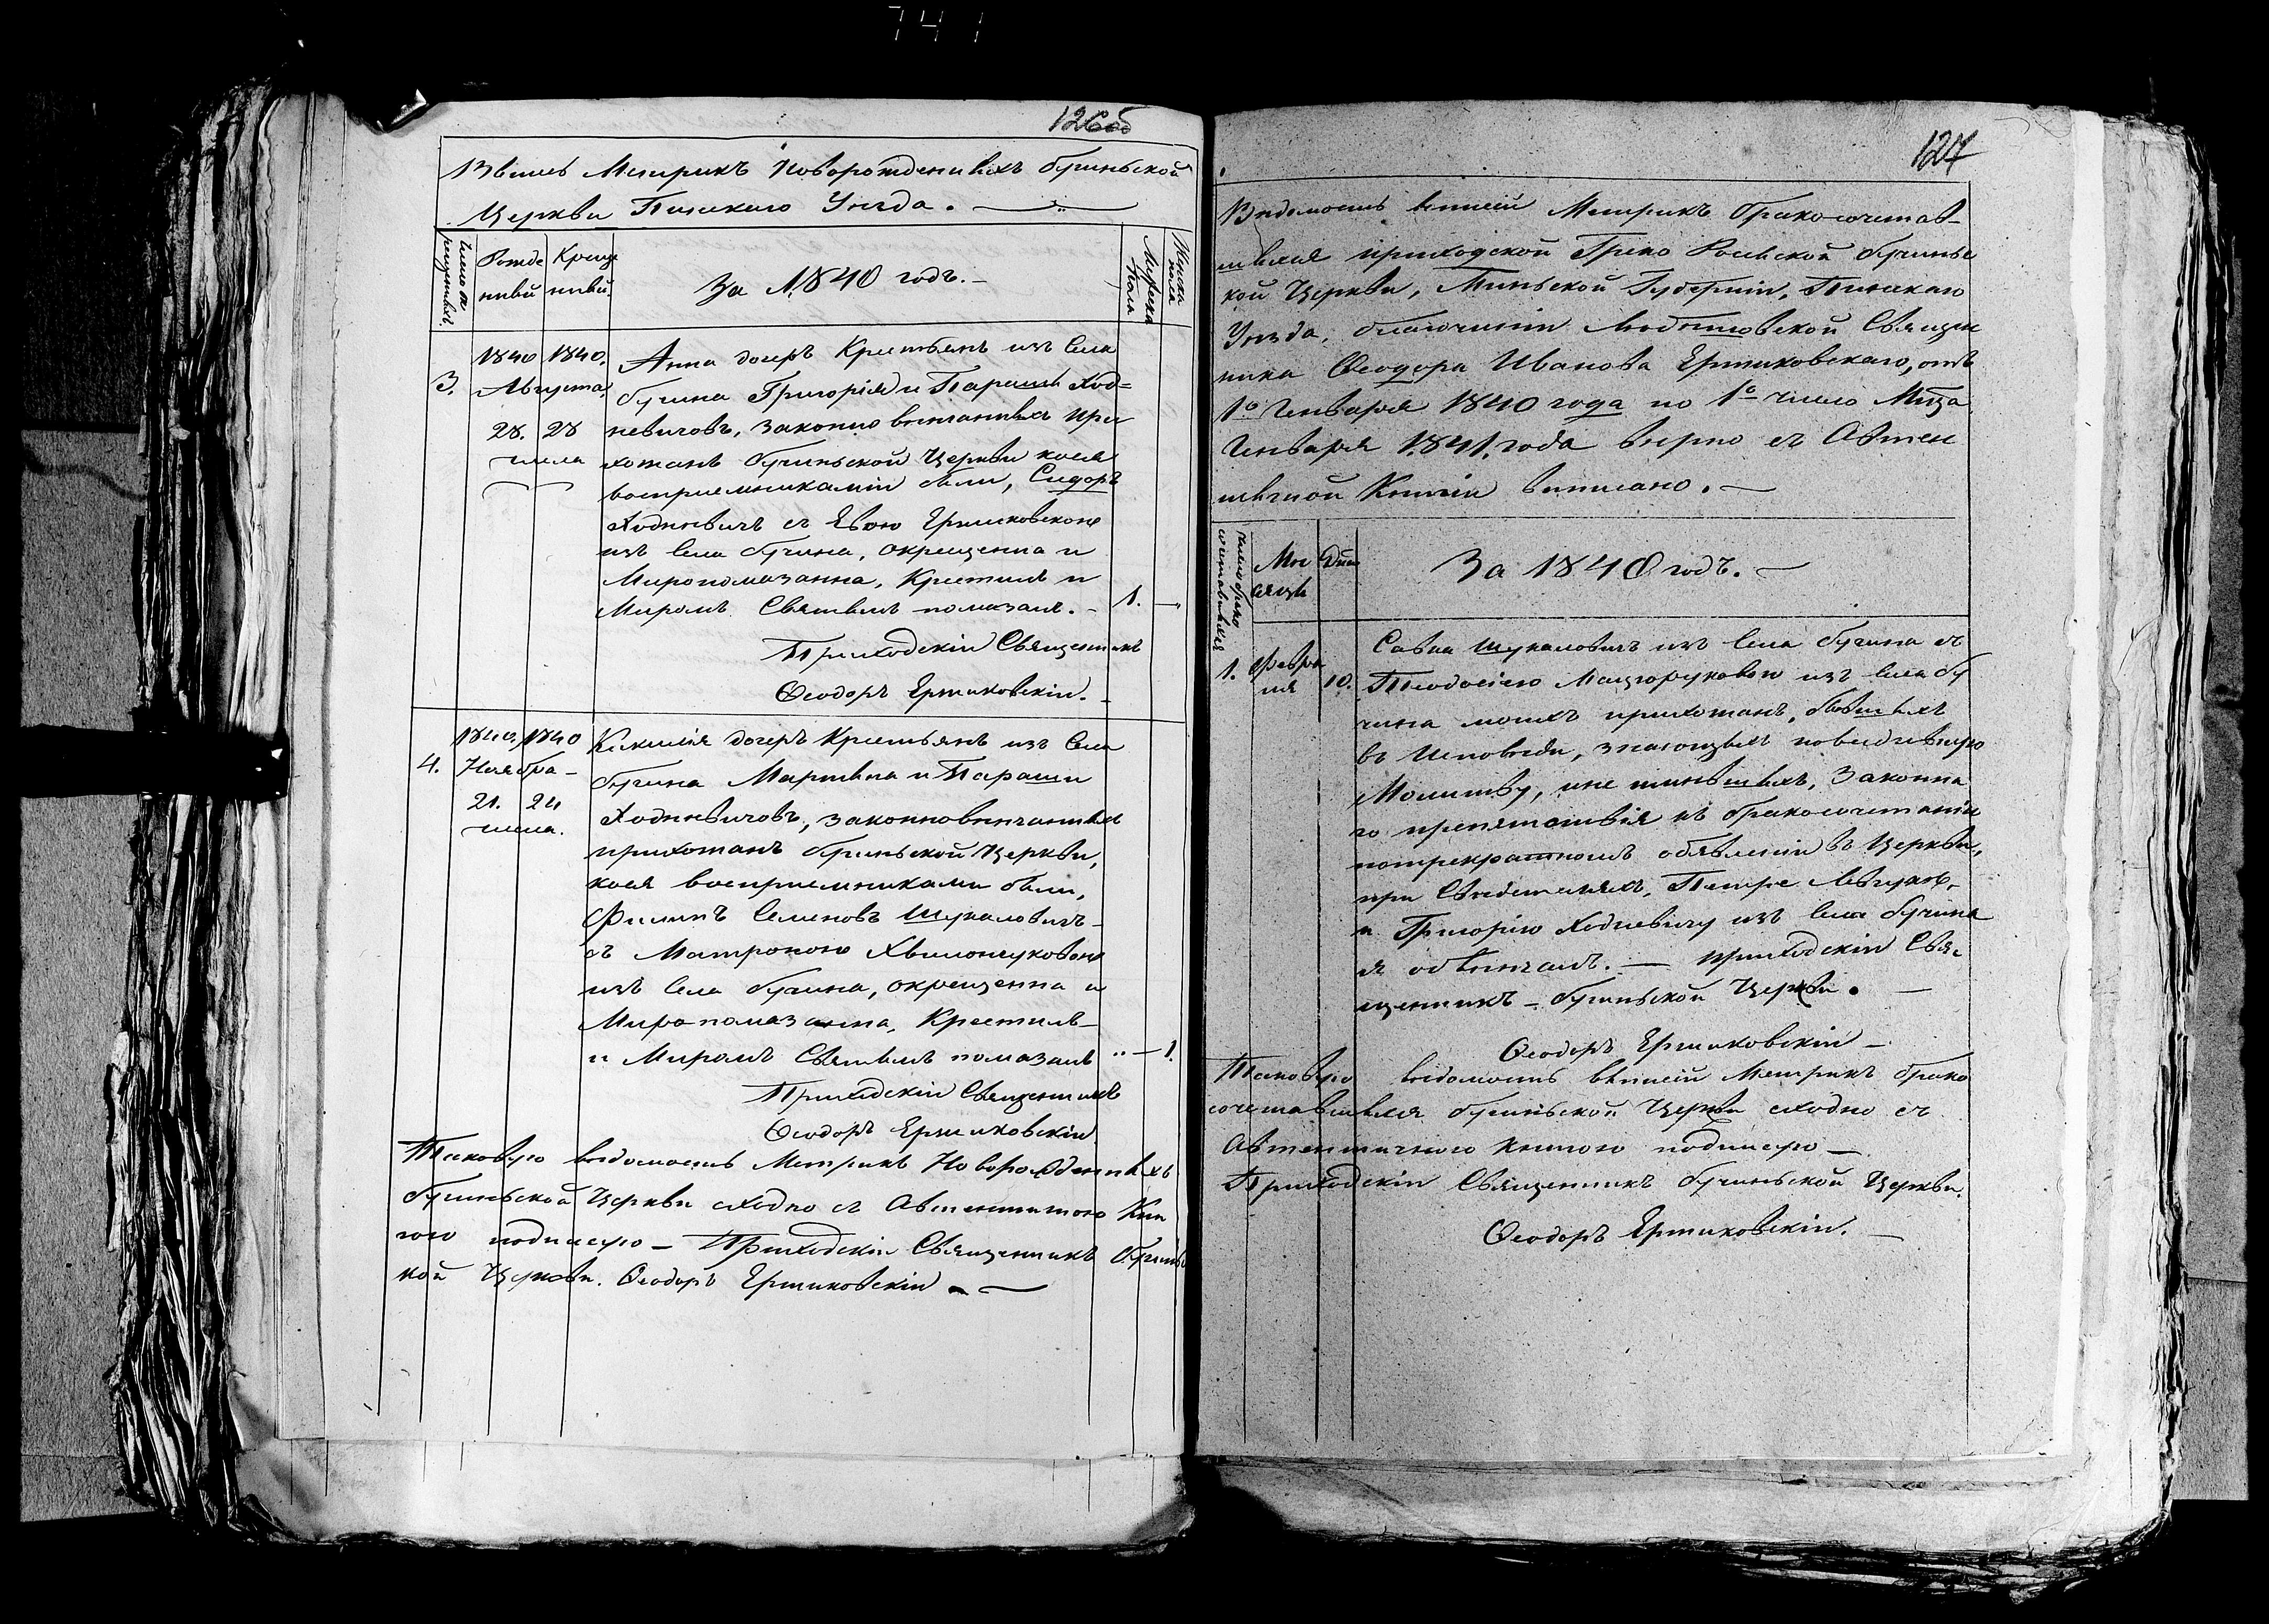 741
126об
Выпись Метрикъ Новорожденныхъ бучиньской
Церкви Пинскаго Уезда.
Число
Рожде
нный
Креще
нный
За 1840 годъ.
Мужеска
пола
Женска
пола
3.
1840 1840.
Августа
28. 28
числа
Анна дочерь Крестьянъ из Села
бучина Григорія и Параски Ход=
невичовъ, законно венчанныхъ при
хожанъ бучиньской Церкви коея
восприемниками были, Сидоръ
Ходневичъ съ Евою Ермаковскою
изъ Села бучина, окрещенна и
Миропомазанна, Крестилъ и
Миромъ Святымъ помазалъ. - 1. —
Приходскій Священникъ
Феодоръ Ермаковскій. -
4.
1840. 1840
Ноября -
21. 24
числа.
Кикилія дочерь Крестьянъ изъ Села
бучина Мартына и Параски
Ходневичовъ, законновенчанныхъ
прихожанъ бучиньской Церкви,
коея восприемниками были,
Филипъ Семеновъ Шукаловичъ
съ Матроною Хвилончуковою
изъ Села бучина, окрещенна и
Миропомазанна, Крестилъ
и Миромъ Святымъ помазалъ " — 1.
Приходскій Священникъ
Феодоръ Ермаковскій
Таковую ведомость Метрикъ Новорожденныхъ
бучиньской Церкви сходно съ Автентичною Кни
гою подписую - Приходскій Священникъ бучинь
кой Церкви. Феодоръ Ермаковскій. —
127
Ведомость выписи Метрикъ бракосочетав-
шихся приходской Греко Россійской бучиньс
кой Церкви, Миньской Губерніи, Пинскаго
Уезда, благочинія Любешовской Священ
ника Феодора Иванова Ермаковскаго, отъ
1о Генваря 1840 года по 1о число Мца
Генваря 1841. года верно съ Автен
тичной Книги выписано. —
Число брако
сочетавшихся
Ме
сяцы
Дни
За 1840 годъ. —
1.
Февра
ля
10.
Савва Шукаловичъ изъ Села бучина съ
Теодосіею Мацоруковою изъ Села бу
чина моихъ прихожанъ, бывшихъ
въ Исповеди, знающихъ повседневную
Молитву, и не имевшихъ, Законна
го препятствія къ бракосочетанію
потрекратномъ объявленіи въ Церкви,
при Свидетеляхъ, Петре Левчуке,
и Григорію Ходневичу изъ Села бучина
я обвенчалъ. — Приходскій Свя
щенникъ - бучиньской Церкви.
Феодоръ Ермаковскій —
Таковую ведомость выписи Метрикъ брако
сочетавшихся бучиньской Церкви сходно съ
Автентичною книгою подписую —
Приходскій Священникъ бучиньской Церкви.
Феодоръ Ермаковскій. —